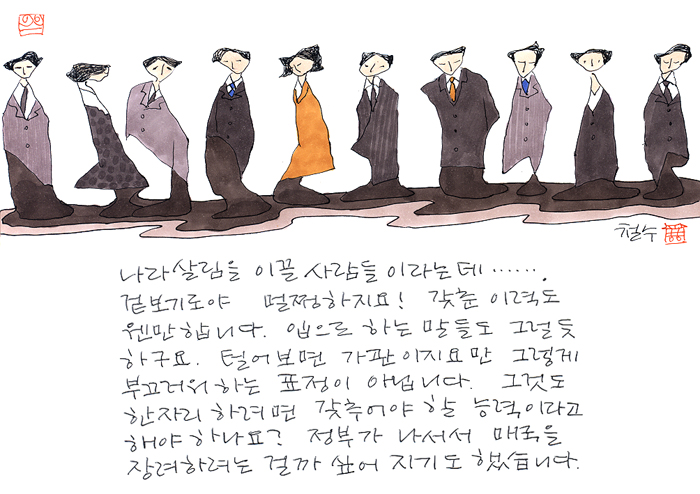 철수
나라살림을 이끌 사람들이라는데…….
겉보기로야 멀쩡하지요! 갖춘 이력도
웬만합니다. 입으로 하는 말들도 그럴듯
하구요. 털어보면 가관이지요만 그렇게
부끄러워하는 표정이 아닙니다. 그것도
한자리 하려면 갖추어야 할 능력이라고
해야 하나요? 정부가 나서서 매국을
장려하려는 걸까 싶어 지기도 했습니다.